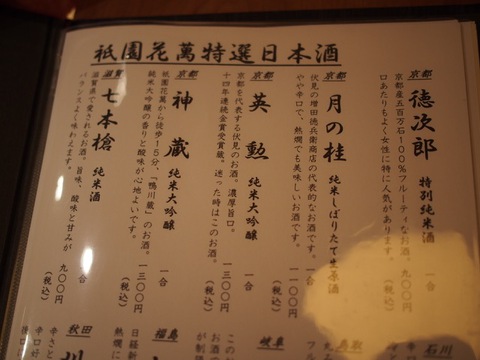 祇園花萬特選日本酒
京都
徳次郎 特別純米酒
京都産五百万石100%フルーティなお酒。
口あたりもよく女性に特に人気があります。
一合
九〇〇円
(税込)
京都
月の桂 純米しぼりたて生原酒
伏見の増田徳兵衛商店の代表的なお酒です。
やや辛口で、熱燗でも美味しいお酒です。
一合
一一〇〇円
(税込)
京都
英勲 純米大吟醸
京都を代表する伏見のお酒。濃厚旨口。
十四年連続金賞受賞蔵。迷った時はこのお酒。
一合
一三〇〇円
(税込)
京都
神蔵 純米大吟醸
祇園花萬から徒歩15分、「鴨川蔵」のお酒。
純米大吟醸の香りと酸味が心地よいです。
一合
一三〇〇円
(税込)
滋賀
七本槍 純米酒
滋賀県で愛されるお酒。旨味、酸味と甘みが
バランスよく味わえます。
一合
九〇〇円
(税込)
石川
鳥取
岐阜
福島
秋田